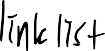 link list